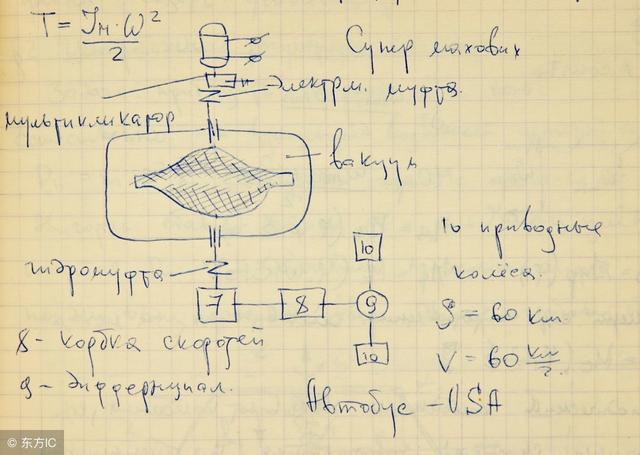 T = Jм·ω²
2
Супер маховик
электрм. муфта.
мультипликатор
вакуум
гидромуфта
7
8
9
10
10
8 - коробка скоростей
9 - дифференциал.
10 приводные
колёса.
S = 60 км
V = 60 км
Автобус - USA
© 东方IC